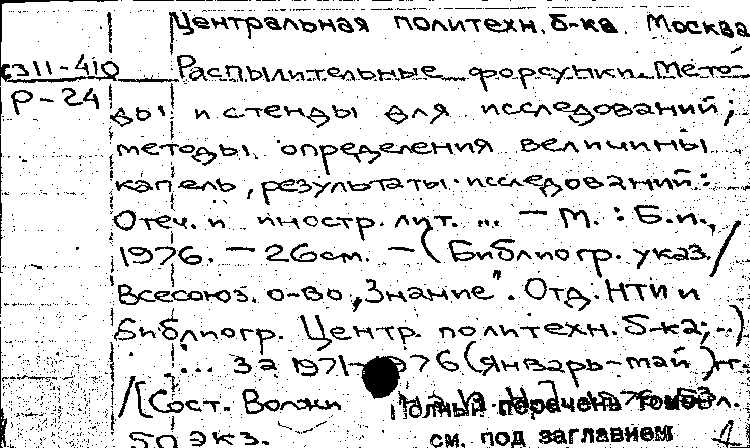 Центральная политехн. б-ка. Москва
С311-410
Распылительные форсунки. Мето-
Р-24
ды и стенды для исследований;
методы определения величины
капель, результаты исследований:
Отеч. и иностр. лит. ... — М. : Б.и.,
1976. — 26см. — (Библиогр. указ. /
Всесоюз. о-во „Знание". Отд. НТИ и
библиогр. Центр. политехн. б-ка; ...)
... за 1971-1976 (январь-май) гг.
/[Сост. Волжи
Полный перечень томов л.
50 экз.
см. под заглавием